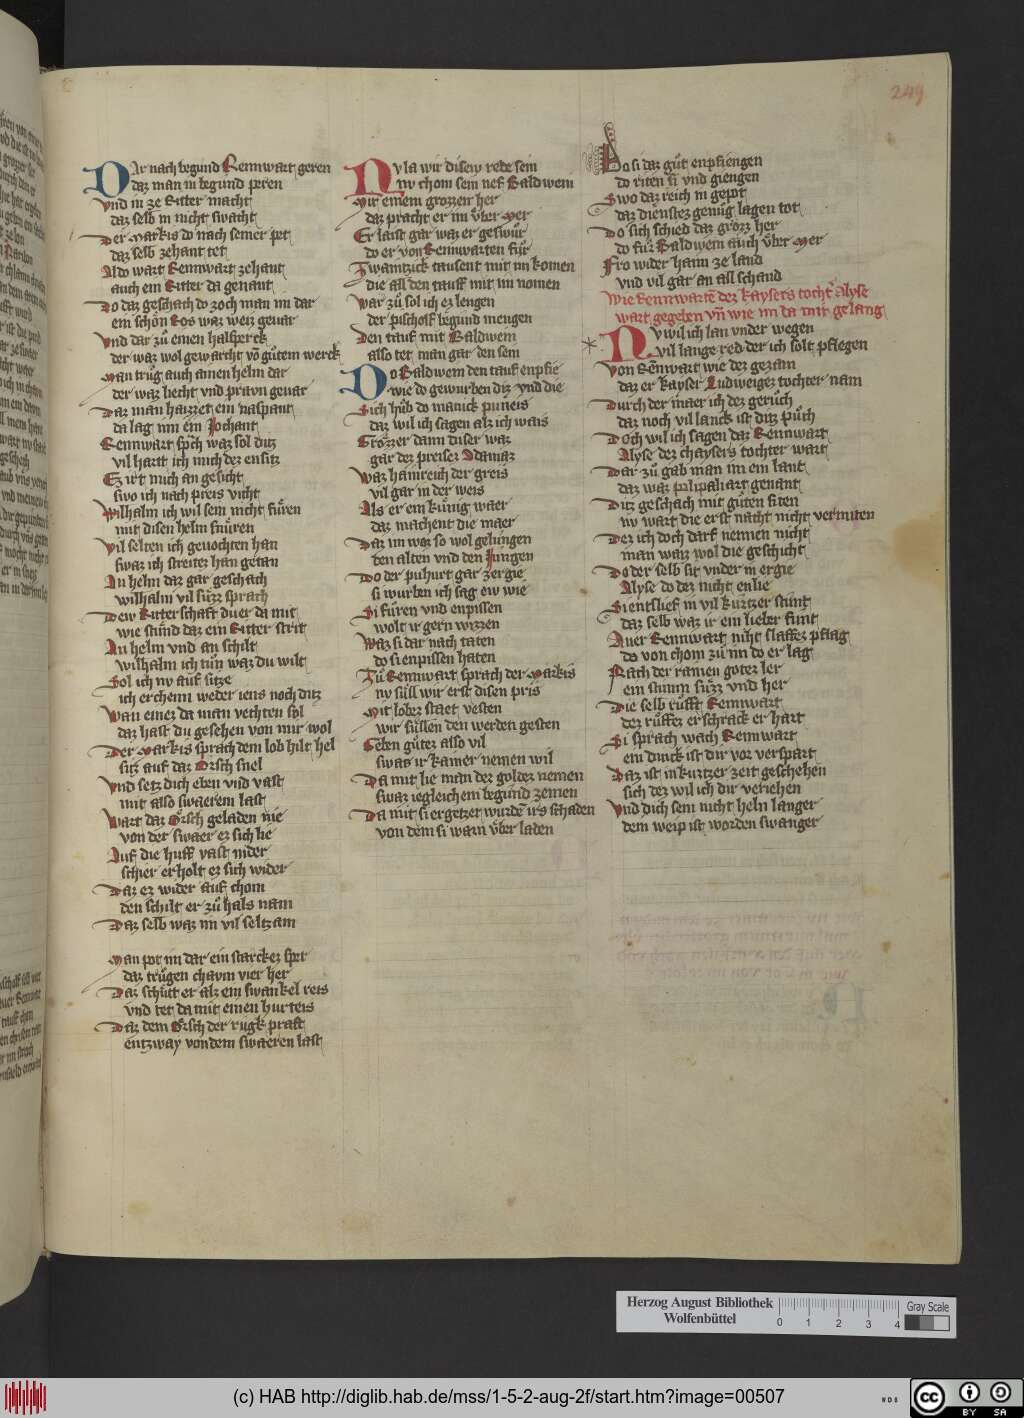 249
Dar nach begund Rennwart geren
daz man in begund peren
Vnd in ze Ritter macht
daz selb in nicht swacht
Der Markis do nach seiner pet
daz selb zehant tet
Aldo wart Rennwart zehant
auch ein Ritter da genant
Do daz geschach do zoch man im dar
ein schön Ros waz weiz gevar
Vnd dar zů einen halsperck
der waz wol geworcht võ gůtem werck
Man trůg auch ainen helm dar
der waz liecht vnd pravn gevar
Daz man haizzet ein naspant
da lag inn ein Jochant
Rennwart sp̃ch waz sol ditz
vil hartt ich mich dez ensitz
Ez irt mich an gesicht
swo ich nach preis vicht
Wilhalm ich wil sein nicht fůren
mit disen helm snůren
Vil selten ich gevochten han
swaz ich streitez han getan
In helm daz gar geschach
wilhalm vil sůzz sprach
Dew Ritterschaft dîuer da mit
wie stůnd daz ein Ritter strit
An helm vnd an schilt
wilhalm ich tůn waz du wilt
Sol ich nv auf sitze
ich erchenn weder iens noch ditz
Wan einez da man vechten sol
daz hast du gesehen von mir wol
Der Markis sprach dem lob hilt hel
sitz auf daz Orsch snel
Vnd setz dich eben vnd vast
mit also swaerem last
Wart daz Orsch geladen nie
von der swaer ez sich lie
Auf die huff vast nider
schier erholt ez sich wider
Daz ez wider auf chom
den schilt er zů hals nam
Daz selb waz im vil seltzam
Man pot im dar ein starckez sper
daz trůgen chavm vier her
Daz schůtt er alz ein swankel reis
vnd tet da mit einen hurteis
Daz dem Orsch der rugk prast
entzway von dem swaeren last
Nv la wir disew rede sein
nv chom sein nef Baldwein
Mit einem grozzen her
daz pracht er im vber mer
Er laist gar waz er geswůr
do er von Rennwarten fůr
Zwaintzick tausent mit im komen
die all den tauff mit im nomen
War zů sol ich ez lengen
der pischolf begund mengen
Den tauf mit Baldwein
also tet man gar den sein
Do Baldwein den tauf enpfie
wie do gewurben diz vnd die
Sich hůb do manick puneis
daz wil ich sagen alz ich weis
Grözzer dann diser waz
gar dez preisez Adamaz
Waz haimreich der greis
vil gar in der weis
Als er ein kůnig waer
daz machent die maer
Daz im waz so wol gelungen
den alten vnd den Jungen
Do der puhurt gar zergie
si wurben ich sag ew wie
Si fůren vnd enpissen
wolt ir gern wizzen
Waz si dar nach taten
do si enpissen haten
Zů Rennwart sprach der Markis
nv sůll wir erst disen pris
Mit lobez staet vesten
wir sůllen den werden gesten
Geben gůtez also vil
swas ir kainer nemen wil
Da mit lie man dez goldez nemen
swaz iegleichem begund zemen
Da mit si ergetzet wurdẽ irs schaden
von dem si warn vber laden
Do si daz gůt enpfiengen
do riten si vnd giengen
Swo daz reich in gepot
daz dienstez genůg lagen tot
Do sich schied daz grozz her
do fůr Baldwein auch vber mer
Fro wider haim ze land
vnd vil gar an all schand
Wie Rennwartẽ dez kaysers tocht' Alyse
wart gegeben vñ wie im da mit gelang
Nv wil ich lan vnder wegen
vil lange red der ich solt pflegen
Von Rẽnwart wie dez gezam
daz er kayser Ludweigez tochter nam
Durch der maer ich dez gerůch
daz noch vil lanck ist ditz půch
Doch wil ich sagen daz Rennwart
Alyse dez chaysers tochter wart
Dar zů gab man im ein lant
daz waz pilipaliart genant
Ditz geschach mit gůten siten
nv wart die erst nacht nicht vermiten
Dez ich doch darf nennen nicht
man waiz wol die geschicht
Do der selb sit vnder in ergie
Alyse do dez nicht enlie
Si entslief in vil kurtzer stunt
daz selb waz ir ein lieber funt
Aver Rennwart niht slaffez pflag
do von chom zů im do er lag
Nach der ramen gotez ler
ein stimm sůzz vnd her
Die selb růfft Rennwart
dez růffez erschrack er hart
Si sprach wach Rennwart
ein dinck ist dir vor verspart
Daz ist in kurtzer zeit geschehen
sich dez wil ich dir veriehen
Vnd dich sein nicht heln langer
dein weip ist worden swanger
Herzog August Bibliothek
Wolfenbüttel
0 1 2 3 4
Gray Scale
(c) HAB http://diglib.hab.de/mss/1-5-2-aug-2f/start.htm?image=00507
WDB
cc BY SA